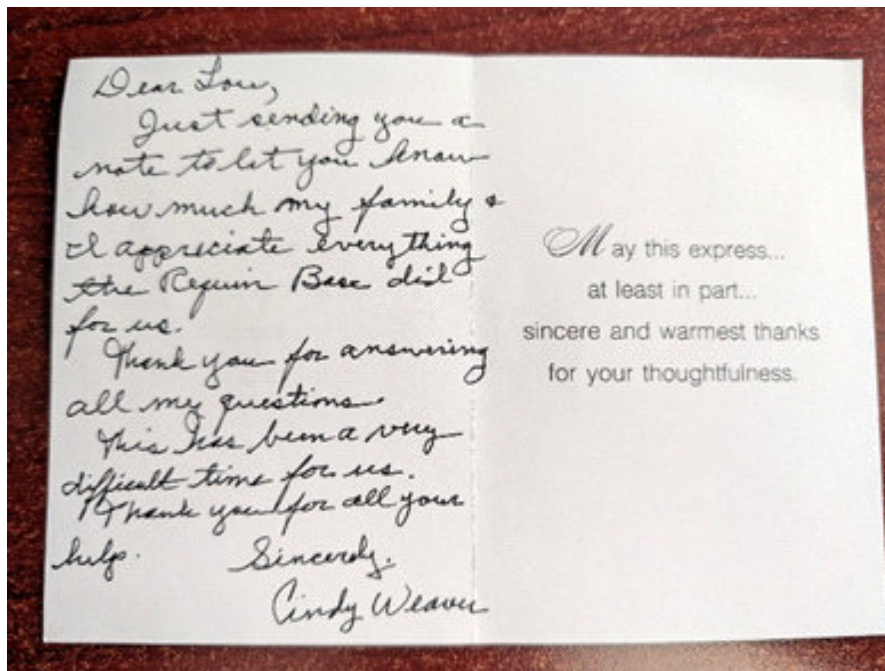 Dear Lou,
Just sending you a
note to let you know
how much my family &
I appreciate everything
the Requin Base did
for us.
Thank you for answering
all my questions.
This has been a very
difficult time for us.
Thank you for all your
help. Sincerely,
Cindy Weaver
May this express...
at least in part...
sincere and warmest thanks
for your thoughtfulness.